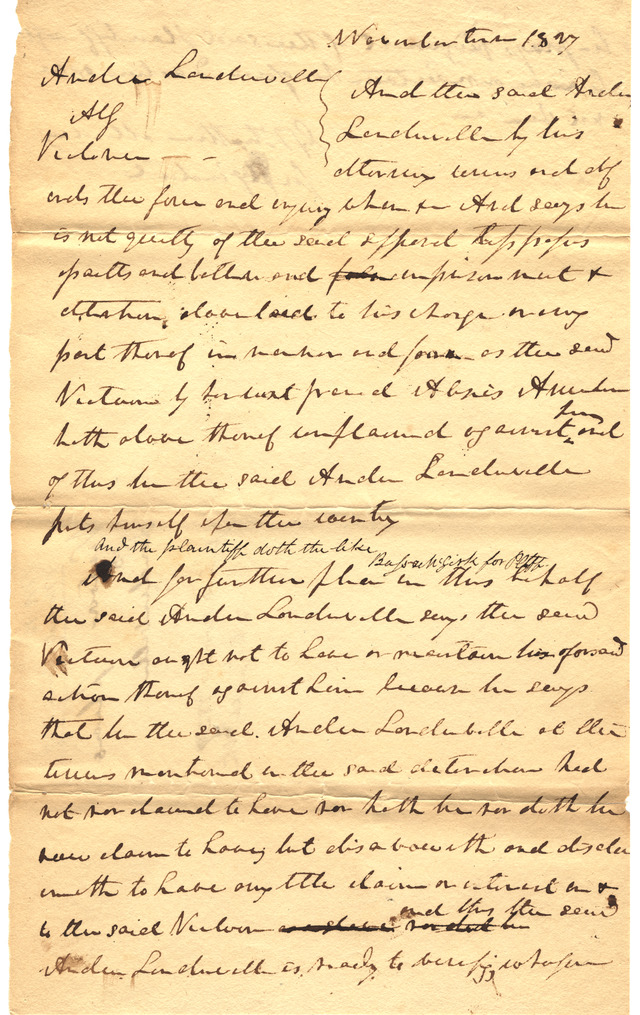 November term 1827
Andre Landreville
Victoire - -
And the said Andre
Landreville by his
attorney comes and def
ends the force and injury when &c And says he
is not guilty of the said supposed trespasses
assaults and batteries and imprisonment &
detention above laid to his charge or any
part thereof in manner and form as the said
Victoire by her next friend
hath above thereof complained against him and
of this he the said Andre Landreville
puts himself upon the country
And the plaintiff doth the like
for Pltff
And for further plea in this behalf
the said Andre Landreville says the said
Victoire ought not to have or maintain his aforesaid
action thereof against him because he says
that he the said Andre Landreville at the
times mentioned in the said declaration had
not nor claimed to have nor hath he nor doth he
now claim to have, but disavoweth and disclai
meth to have any title claim or interest in &
to the said Victoire and this the said
Andre Landreville is ready to verify wherefore